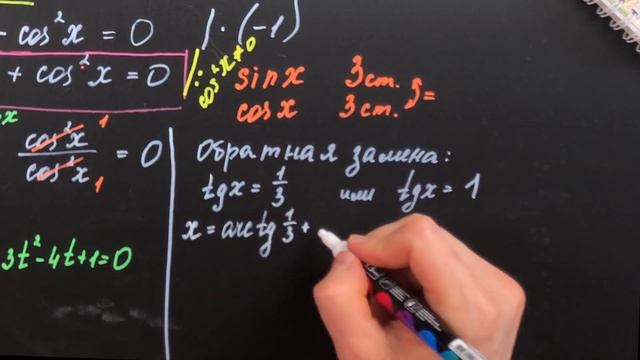 - cos²x = 0 | · (-1)
+ cos²x = 0 | : cos²x ≠ 0
sinx 3 cm.
cosx 3 cm. =
x
cos²x 1
cos²x 1
= 0
3t² - 4t + 1 = 0
Обратная замена:
tgx = 1/3 или tgx = 1
x = arctg 1/3 +